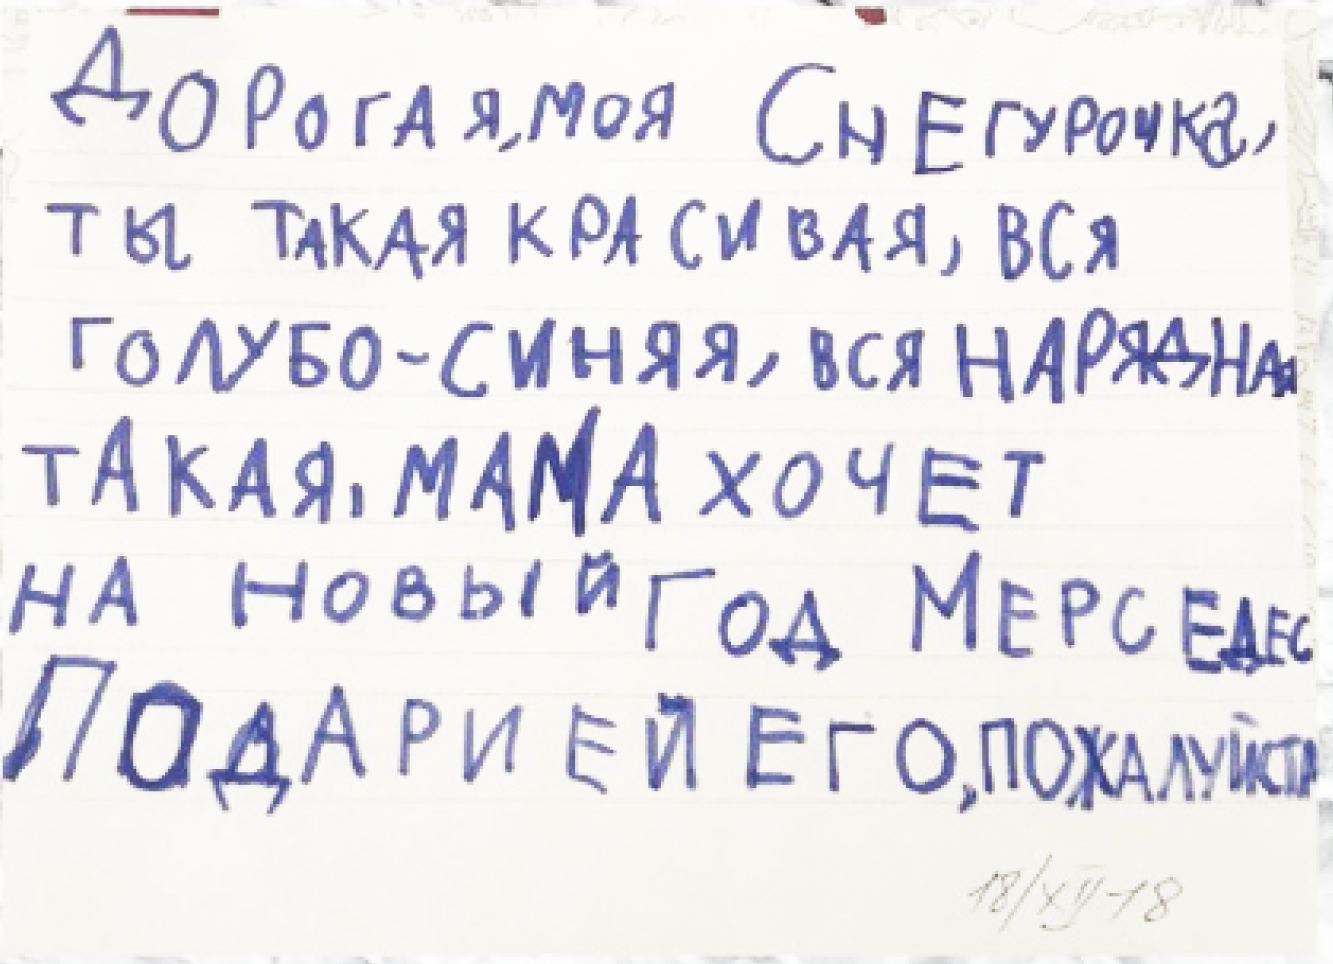 Дорогая, моя Снегурочка,
ты такая красивая, вся
голубо-синяя, вся нарядная
такая, мама хочет
на новый год Мерседес
Подари ей его, пожалуйста
18/XII-18